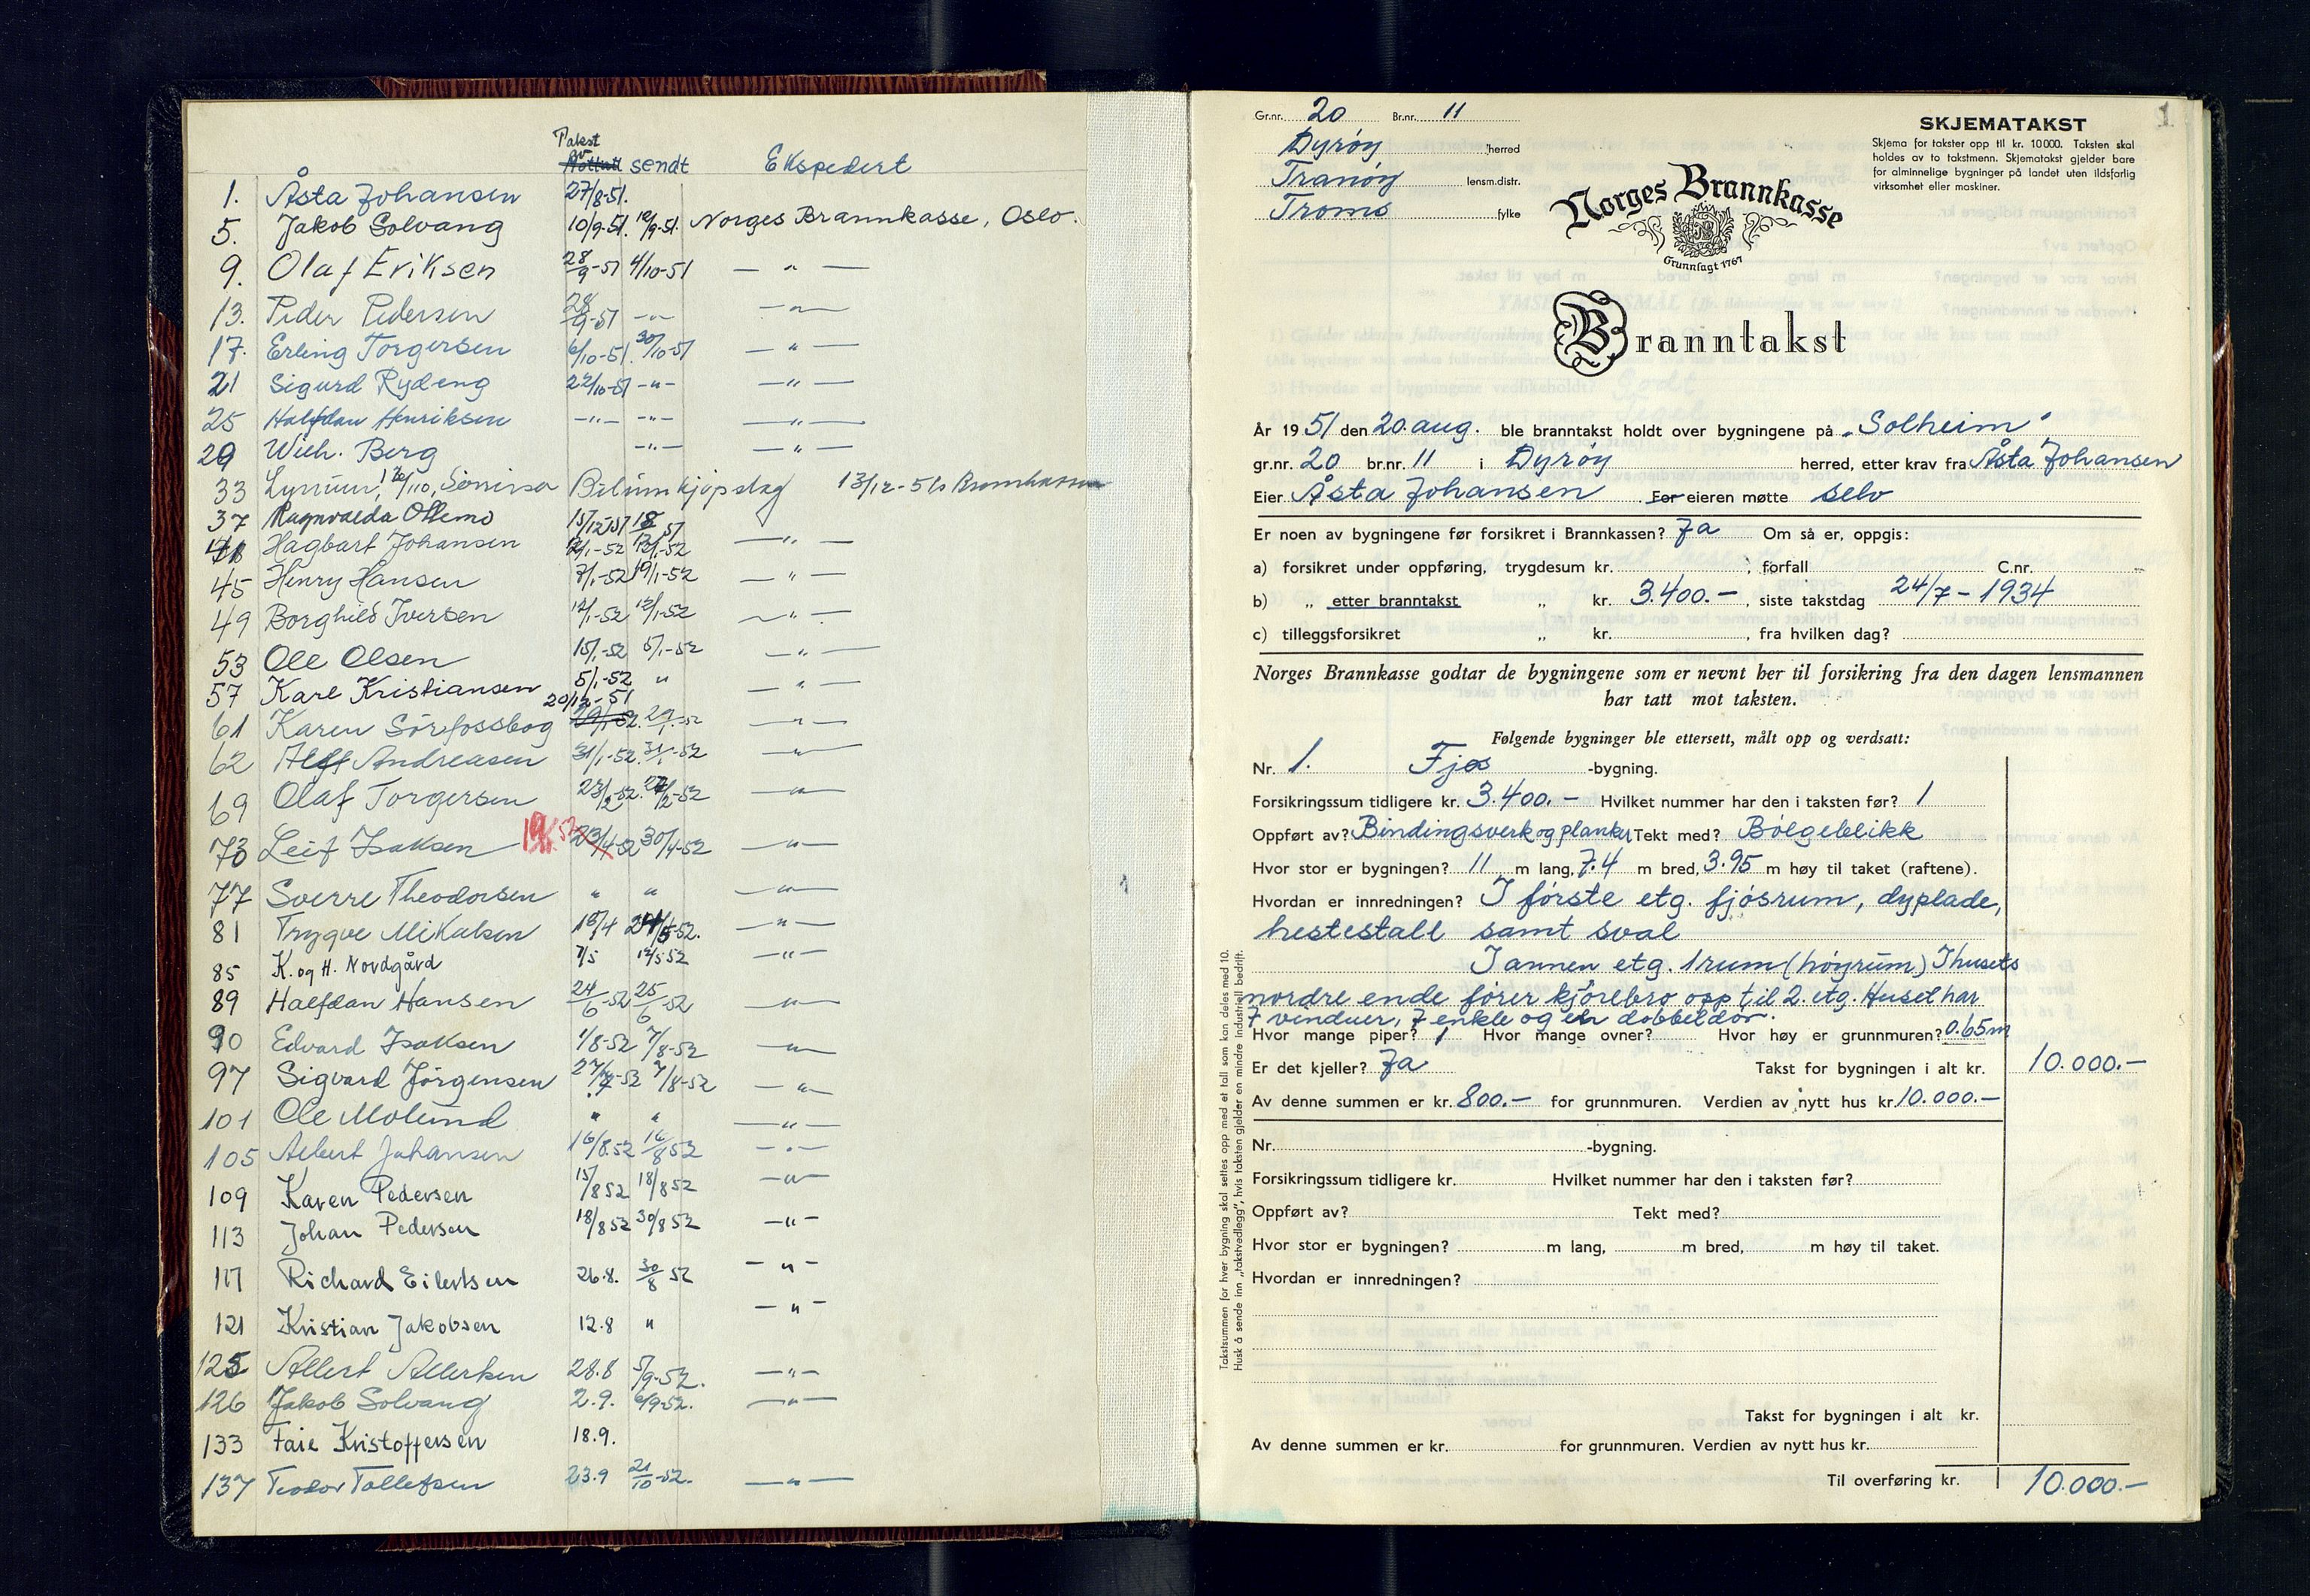 Takst av sendt Ekspedert
1. Åsta Johansen 27/8-51.
5. Jakob Solvang 10/9-51. 12/9-51. Norges Brannkasse, Oslo.
9. Olaf Eriksen 28/9-51 4/10-51 — " —
13. Peder Pedersen 28/9-51 -"- —"—
17. Erling Torgersen 6/10-51. 30/10-51 — " —
21 Sigurd Rydeng 22/10-51 -"- —"—
25 Halfdan Henriksen -"- -"- —"—
29 Wilh. Berg -"- —"—
33 13/12-51
37 Ragnvalda Ottemo 15/12-51 18/51
41 Hagbart Johansen 12/1-52 12/1-52 — " —
45 Henry Hansen 7/1-52 19/1-52 — " —
49 Borghild Iversen 12/1-52 12/1-52 — " —
53 Ole Olsen 15/1-52 5/1-52 — " —
57 Kare Kristiansen 5/1-52 " — " —
20/12-51
61 Karen Sörfossbog 29/1-52. 29/1-52 —"—
62 Alff Andreasen 31/1-52. 31/1-52 —"—
69 Olaf Torgersen 23/2-52. 27/2-52 —"—
73 Leif Isaksen 23/4-52 30/4-52 —"—
77 Sverre Theodorsen " " —"—
81 Trygve Mikalsen 18/4 24/5-52. —"—
85 K. og H. Nordgård 7/5 12/5 52 —"—
89 Halfdan Hansen 24/6-52 25/6-52 —"—
90 Edvard Isaksen 1/8-52 7/8-52 —"—
97 Sigvard Jörgensen 27/7-52 7/8-52 —"—
101 Ole Molund " " —"—
105 Albert Johansen 16/8.52 16/8 52 —"—
109 Karen Pedersen 15/8 52 18/8 52 —"—
113 Johan Pedersen 18/8 52 30/8 52 —"—
117 Richard Eilertsen 26.8. 30/8 52 —"—
121 Kristian Jakobsen 12.8 " —"—
125 Allert Allertsen 28.8 5/9-52. —"—
126 Jakob Solvang 2.9. 6/9-52. —"—
133 Kristoffersen 18.9.
137 Teodor Tollefsen 23.9 21/10-52. —"—
1
Gr.nr. 20 Br.nr. 11
Dyrøy herred
Tranøy lensm.distr.
Troms fylke
SKJEMATAKST
Skjema for takster opp til kr. 10000. Taksten skal
holdes av to takstmenn. Skjematakst gjelder bare
for alminnelige bygninger på landet uten ildsfarlig
virksomhet eller maskiner.
Norges Brannkasse
Grunnlagt 1767
Branntakst
År 1951 den 20. aug. ble branntakst holdt over bygningene på "Solheim"
gr.nr. 20 br.nr. 11 i Dyrøy herred, etter krav fra Åsta Johansen
Eier Åsta Johansen For eieren møtte selv
Er noen av bygningene før forsikret i Brannkassen? Ja Om så er, oppgis:
a) forsikret under oppføring, trygdesum kr. , forfall C.nr.
b) „ etter branntakst „ kr. 3.400.- , siste takstdag 24/7-1934
c) tilleggsforsikret „ kr. , fra hvilken dag?
Norges Brannkasse godtar de bygningene som er nevnt her til forsikring fra den dagen lensmannen
har tatt mot taksten.
Følgende bygninger ble ettersett, målt opp og verdsatt:
Nr. 1. Fjøs -bygning.
Forsikringssum tidligere kr. 3.400.- Hvilket nummer har den i taksten før? 1
Oppført av? Bindingsverk og planker Tekt med? Bölgeblikk
Hvor stor er bygningen? 11 m lang, 7.4 m bred, 3.95 m høy til taket (raftene).
Hvordan er innredningen? I förste etg. fjösrum, dyplade,
hestestall samt sval
I annen etg. 1 rum (höyrum) I husets
nordre ende förer kjörebro opp til 2. etg. Huset har
7 vinduer, 7 enkle og en dobbeldör.
Hvor mange piper? 1 Hvor mange ovner? Hvor høy er grunnmuren? 0.65m
Er det kjeller? Ja Takst for bygningen i alt kr. 10.000.-
Av denne summen er kr. 800.- for grunnmuren. Verdien av nytt hus kr. 10.000.-
Nr. -bygning.
Forsikringssum tidligere kr. Hvilket nummer har den i taksten før?
Oppført av? Tekt med?
Hvor stor er bygningen? m lang, m bred, m høy til taket.
Hvordan er innredningen?
Takst for bygningen i alt kr.
Av denne summen er kr. for grunnmuren. Verdien av nytt hus kr.
Til overføring kr. 10.000.-
Takstsummen for hver bygning skal settes opp med et tall som kan deles med 10.
Husk å sende inn „takstvedlegg", hvis taksten gjelder en mindre industriell bedrift.